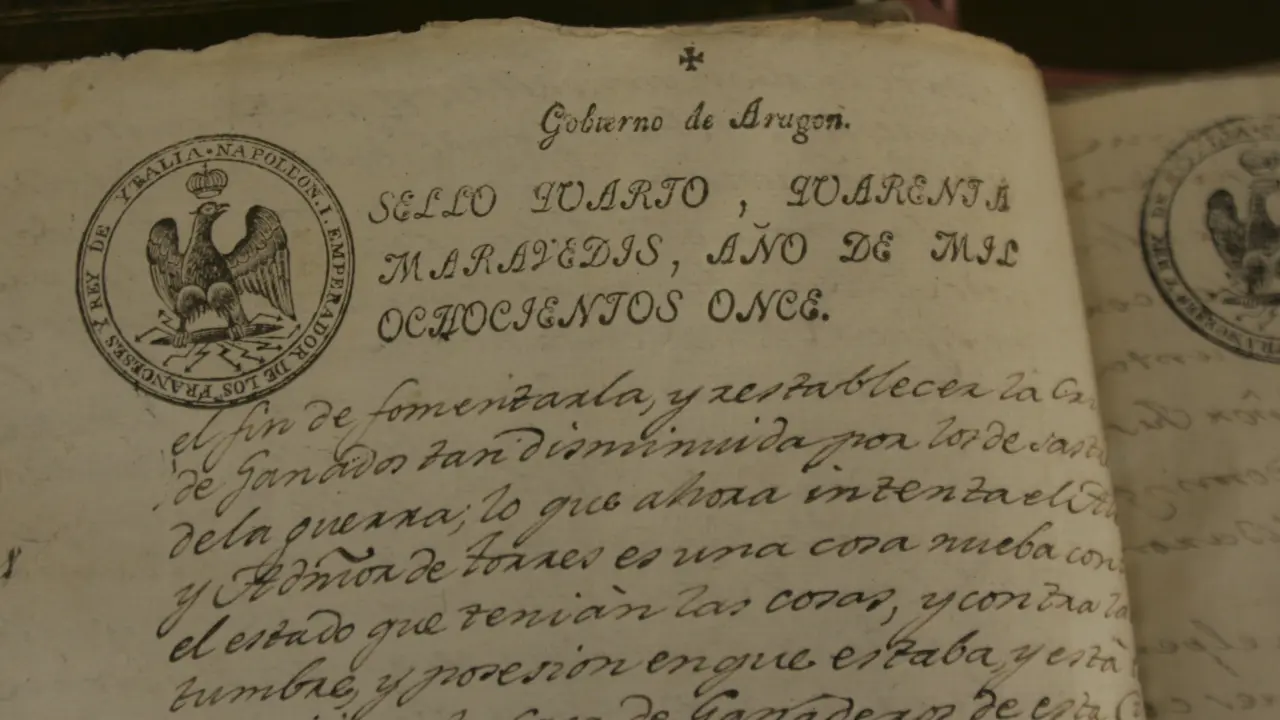 ✠
Gobierno de Aragon.
NAPOLEON. I. EMPERADOR DE LOS FRANCESES Y REY DE YTALIA
SELLO QUARTO, QUARENTA
MARAVEDIS, AÑO DE MIL
OCHOCIENTOS ONCE.
el fin de fomentarla, y restablecer la
de Ganados tan disminuida por los desast
de la guerra; lo que ahora intenta el
y Admōr de torres es una cosa nueba con
el estado que tenian las cosas, y contra la
tumbre, y posesion en que estaba, y está
de Ganaderos de esta